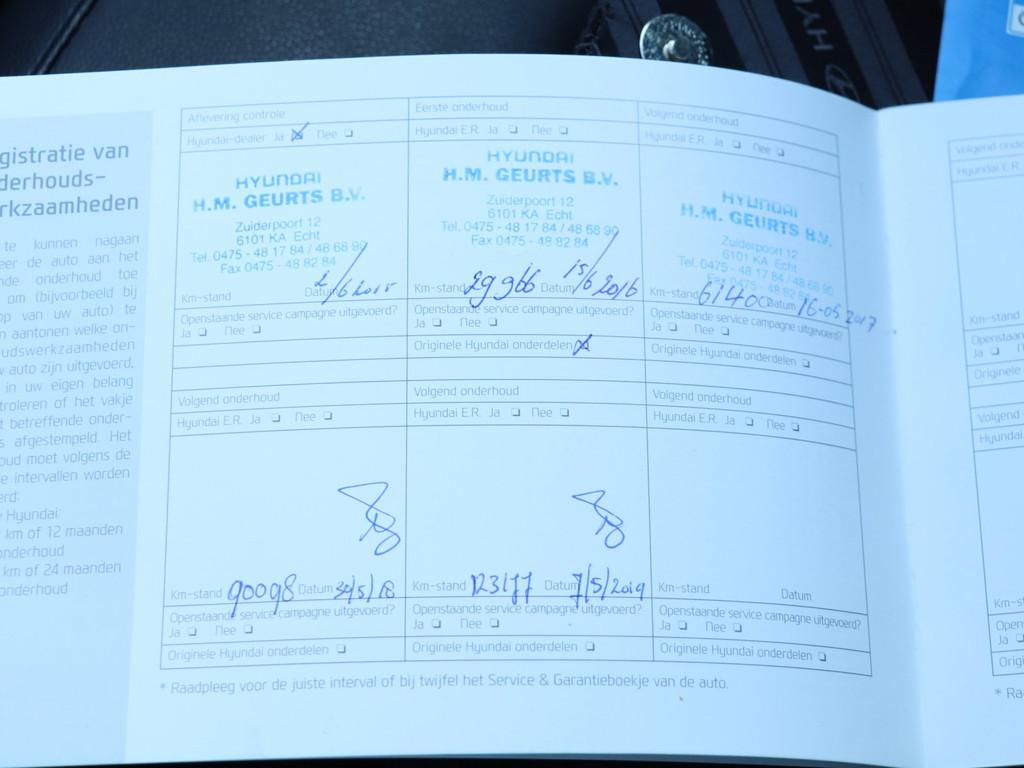 gistratie van
derhouds-
rkzaamheden
te kunnen nagaan
eer de auto aan het
nde onderhoud toe
om (bijvoorbeeld bij
op van uw auto) te
n aantonen welke on-
udswerkzaamheden
w auto zijn uitgevoerd,
in uw eigen belang
troleren of het vakje
t betreffende onder-
s afgestempeld. Het
oud moet volgens de
e intervallen worden
erd:
e Hyundai:
km of 12 maanden
onderhoud
km of 24 maanden
onderhoud
Aflevering controle
Hyundai-dealer Ja Nee
HYUNDAI
H.M. GEURTS B.V.
Zuiderpoort 12
6101 KA Echt
Tel. 0475 - 48 17 84 / 48 68 90
Fax 0475 - 48 82 84
Km-stand Datum 2/6 2015
Openstaande service campagne uitgevoerd?
Ja Nee
Eerste onderhoud
Hyundai E.R. Ja Nee
HYUNDAI
H.M. GEURTS B.V.
Zuiderpoort 12
6101 KA Echt
Tel. 0475 - 48 17 84 / 48 68 90
Fax 0475 - 48 82 84
Km-stand 29966 Datum 15/6 2016
Openstaande service campagne uitgevoerd?
Ja Nee
Originele Hyundai onderdelen
Volgend onderhoud
Hyundai E.R. Ja Nee
HYUNDAI
H.M. GEURTS B.V.
Zuiderpoort 12
6101 KA Echt
Tel. 0475 - 48 17 84 / 48 68 90
Fax 0475 - 48 82 84
Km-stand 61400 Datum 16-05 2017
Openstaande service campagne uitgevoerd?
Ja Nee
Originele Hyundai onderdelen
Volgend onderhoud
Hyundai E.R. Ja Nee
Km-stand 90098 Datum 30/5/18
Openstaande service campagne uitgevoerd?
Ja Nee
Originele Hyundai onderdelen
Volgend onderhoud
Hyundai E.R. Ja Nee
Km-stand 123177 Datum 7/5/2019
Openstaande service campagne uitgevoerd?
Ja Nee
Originele Hyundai onderdelen
Volgend onderhoud
Hyundai E.R. Ja Nee
Km-stand Datum
Openstaande service campagne uitgevoerd?
Ja Nee
Originele Hyundai onderdelen
* Raadpleeg voor de juiste interval of bij twijfel het Service & Garantieboekje van de auto.
Volgend onde
Hyundai E.R.
Km-stand
Openstaan
Ja Nee
Originele
Volgend
Hyundai
Km-st
Open
Ja
Origi
* Ra
HY